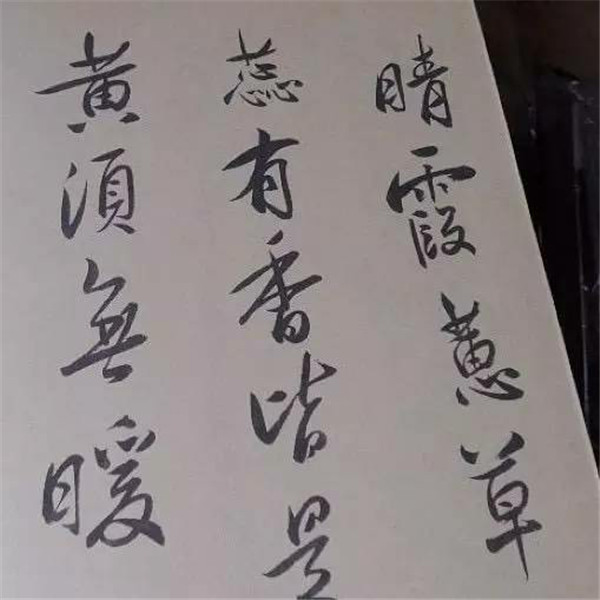 晴霞蕙草
蕊有香皆是
黄須無暖